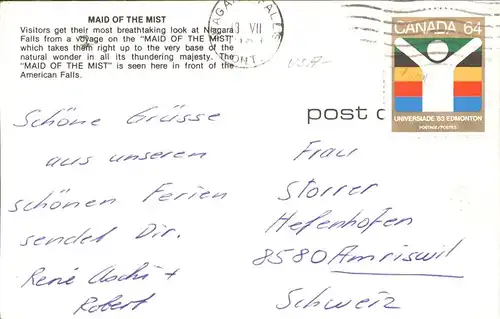 MAID OF THE MIST
Visitors get their most breathtaking look at Niagara
Falls from a voyage on the "MAID OF THE MIST"
which takes them right up to the very base of the
natural wonder in all its thundering majesty. The
"MAID OF THE MIST" is seen here in front of the
American Falls.
NIAGARA FALLS
VII
ONT.
CANADA 64
UNIVERSIADE '83 EDMONTON
POSTAGE/POSTES
USA-
post
Schöne Grüsse
aus unseren
schönen Ferien
sendet Dir.
René
Robert
Frau
Storrer
Hefenhofen
8580 Amriswil
Schweiz